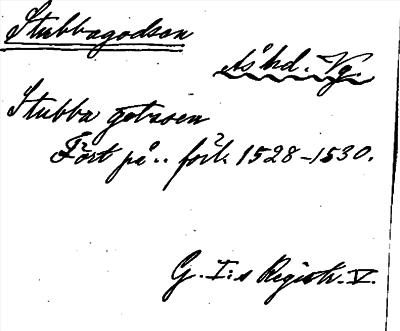 Stubbagodsen
Ås hd. Vg.
Stubba godsen
Fört på.. förl. 1528-1530.
G. I:s Registr. V.